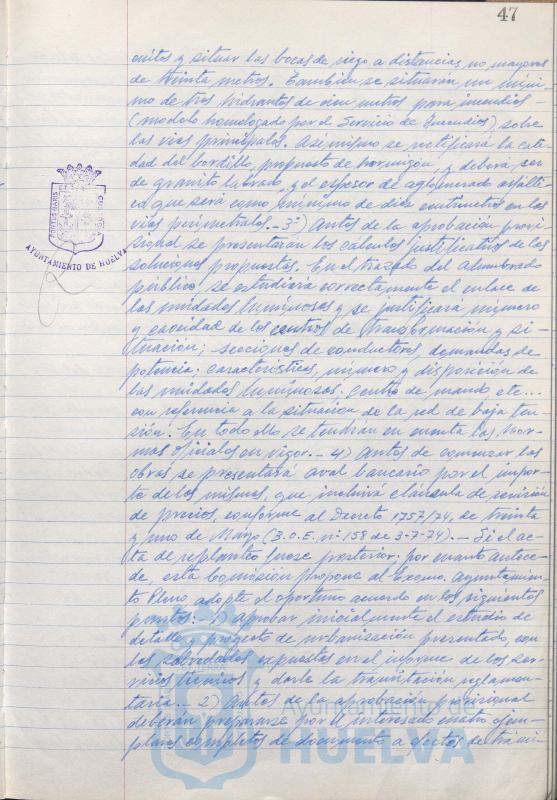 47
cuitos y situar las bocas de riego a distancias no mayores
de treinta metros. También se situarán un míni-
mo de tres hidrantes de cien metros para incendios -
(modelo homologado por el Servicio de Incendios) sobre
las vías principales. Asimismo se rectificará la cali-
dad del bordillo, propuesto de hormigón, y deberá ser
de granito labrado, y el espesor de aglomerado asfálti-
co que será como mínimo de diez centímetros en las
vías perimetrales. - 3º) Antes de la aprobación provi-
sional se presentarán los cálculos justificativos de las
soluciones propuestas. En el trazado del alumbrado
público se estudiará correctamente el enlace de
las unidades luminosas y se justificará número
y capacidad de los centros de transformación y si-
tuación; secciones de conductores, demandas de
potencia; características, número y disposición de
las unidades luminosas; centro de mando etc...
con referencia a la situación de la red de baja ten-
sión. En todo ello se tendrán en cuenta las Nor-
mas oficiales en vigor. - 4) Antes de comenzar las
obras se presentará aval bancario por el impor-
te de los mismos, que incluirá cláusula de revisión
de precios, conforme al Decreto 1757/74, de treinta
y uno de Mayo (B.O.E. nº 158 de 3-7-74). - Si el ac-
ta de replanteo fuese posterior. por cuanto antece-
de, esta Comisión propone al Excmo. Ayuntamien-
to Pleno adopte el oportuno acuerdo en los siguientes
puntos: - 1) Aprobar inicialmente el estudio de
detalle y proyecto de urbanización presentado, con
las salvedades expuestas en el informe de los ser-
vicios técnicos y darle la tramitación reglamen-
taria. - 2) Antes de la aprobación provisional
deberán prepararse por el interesado cuatro ejem-
plares completos de documento a efectos de trámi-
AYUNTAMIENTO DE HUELVA
Ayuntamiento de
HUELVA